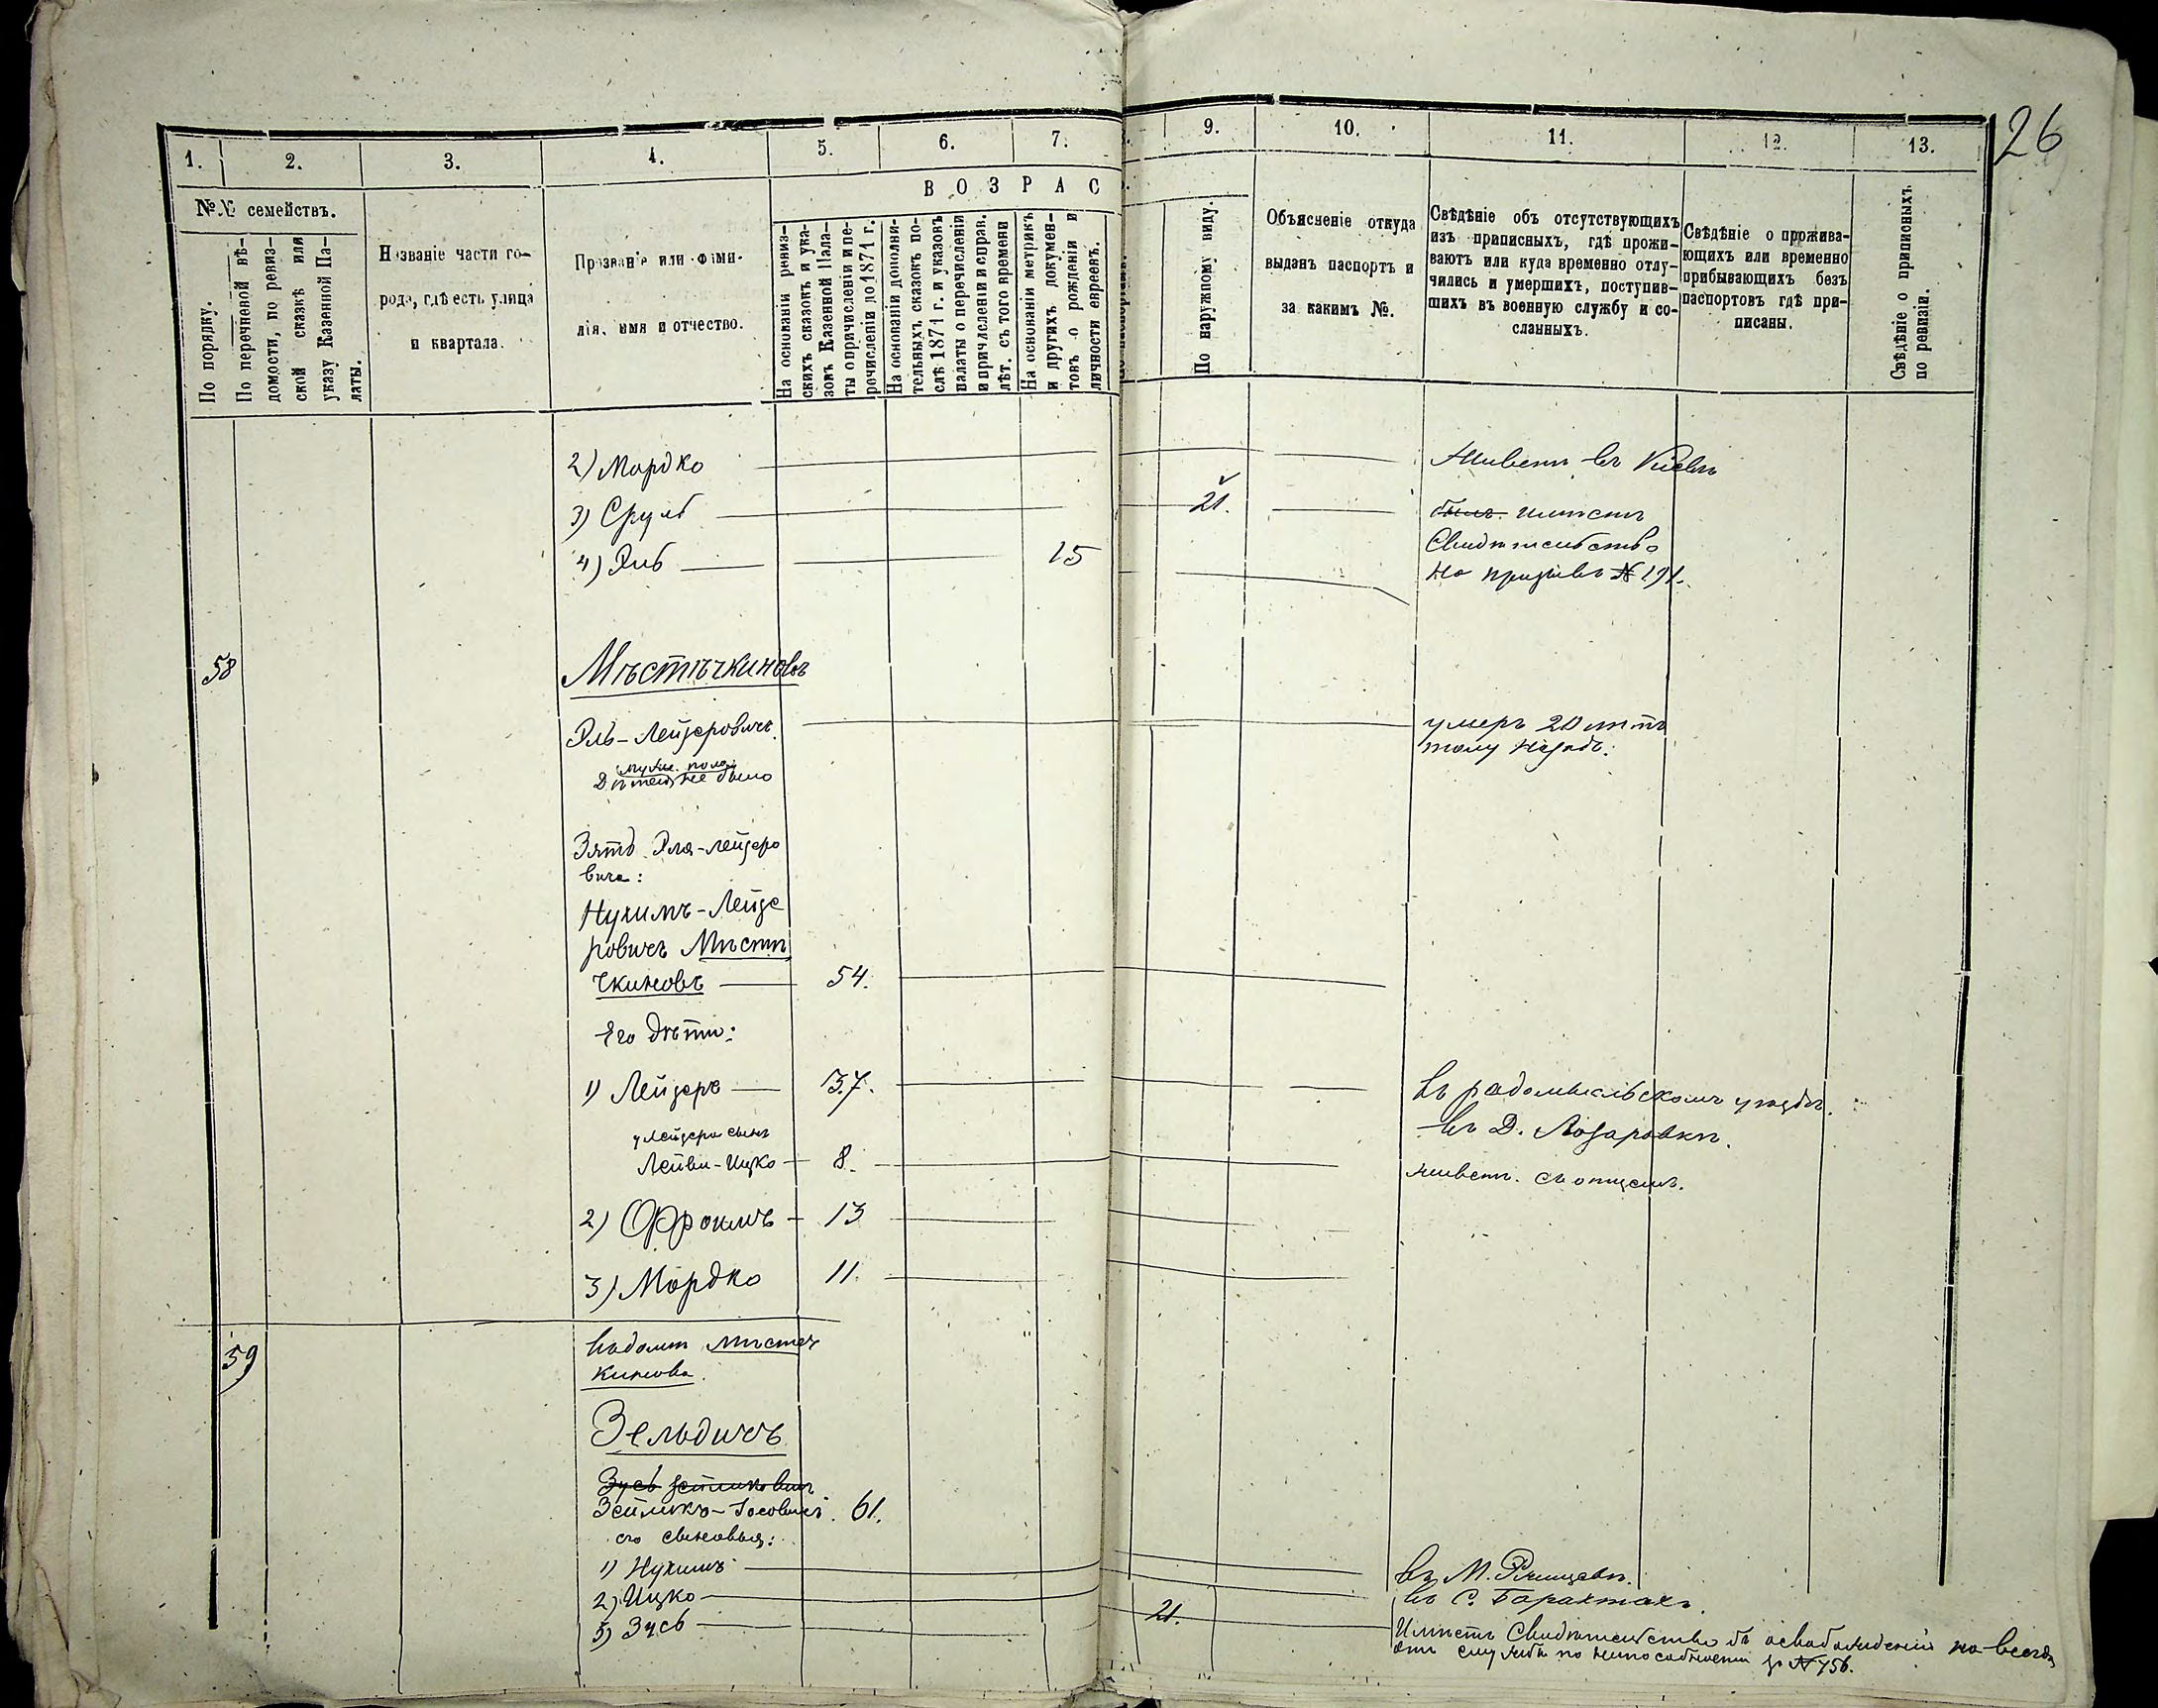 26
1. 2. 3. 4. 5. 6. 7. 9. 10. 11. 12. 13.
ВОЗРАС
№№ семействъ.
По порядку.
По перечневой вѣ-
домости, по ревиз-
ской сказкѣ или
указу Казенной Па-
латы.
Названіе части го-
рода, гдѣ есть улица
и квартала.
Прозваніе или фами-
лія, имя и отчество.
На основаніи ревиз-
скихъ сказокъ и ука-
зовъ Казенной Пала-
ты о причисленіи и пе-
речисленіи до 1871 г.
На основаніи дополни-
тельныхъ сказокъ по-
слѣ 1871 г. и указовъ
палаты о перечисленіи
и причисленіи и справ.
лѣт. съ того времени
На основаніи метрикъ
и другихъ докумен-
товъ о рожденіи и
личности евреевъ.
По наружному виду.
Объясненіе откуда
выданъ паспортъ и
за какимъ №.
Свѣдѣніе объ отсутствующихъ
изъ приписныхъ, гдѣ прожи-
ваютъ или куда временно отлу-
чились и умершихъ, поступив-
шихъ въ военную службу и со-
сланныхъ.
Свѣдѣніе о прожива-
ющихъ или временно
прибывающихъ безъ
паспортовъ гдѣ при-
писаны.
Свѣдѣніе о приписныхъ
по ревизіи.
2) Мордко Живетъ въ Кіевѣ
3) Сруль 21. имѣетъ
Свидѣтельство
4) Эль 15 На призывъ № 191.
58 Мѣстѣчкиновъ
Эль-Лейзеровичъ умеръ 20 лѣтъ
тому назадъ.
мужс. пола
Дѣтей не было
Зять Эля-Лейзеро
вича:
Нухимъ-Лейзе
ровичъ Мѣстѣ
чкиновъ 54.
Его дѣти:
1) Лейзеръ 37. въ радомысльскомъ уѣздѣ.
въ Д. Лазаровкѣ.
у Лейзера сынъ
Лейви-Ицко 8. живетъ съ отцемъ.
2) Фроимъ 13
3) Мордко 11.
59 Мѣстеч
кинова.
Зельдичъ
Зусь Зейликовичъ
Зейликъ-Іосовичъ 61.
его сыновья:
1) Нухимъ въ М. Ржищевѣ.
2) Ицко въ С. Барахтахъ.
3) Зусь 21. Имѣетъ Свидѣтельство объ освобожденіи на всегда
отъ службы по неспособности за № 456.